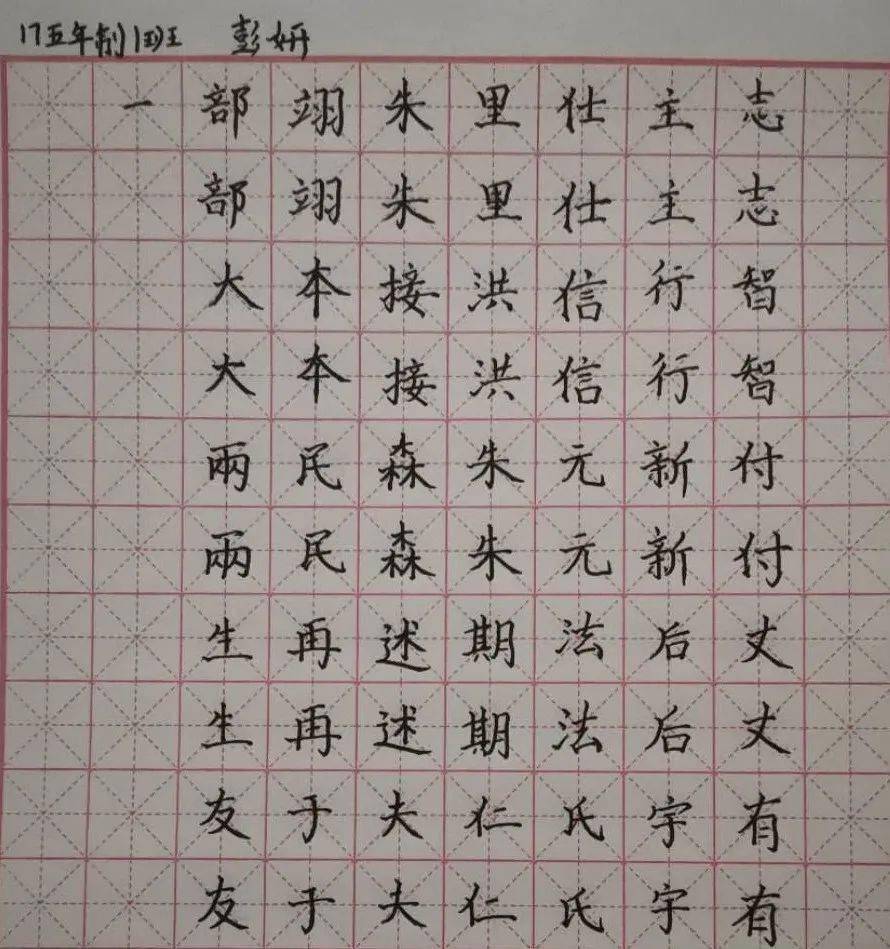 17五年制1班 彭妍
一部翊朱里仕主志
部翊朱里仕主志
大本接洪信行智
大本接洪信行智
兩民森朱元新付
兩民森朱元新付
生再述期法后丈
生再述期法后丈
友于夫仁氏宇有
友于夫仁氏宇有